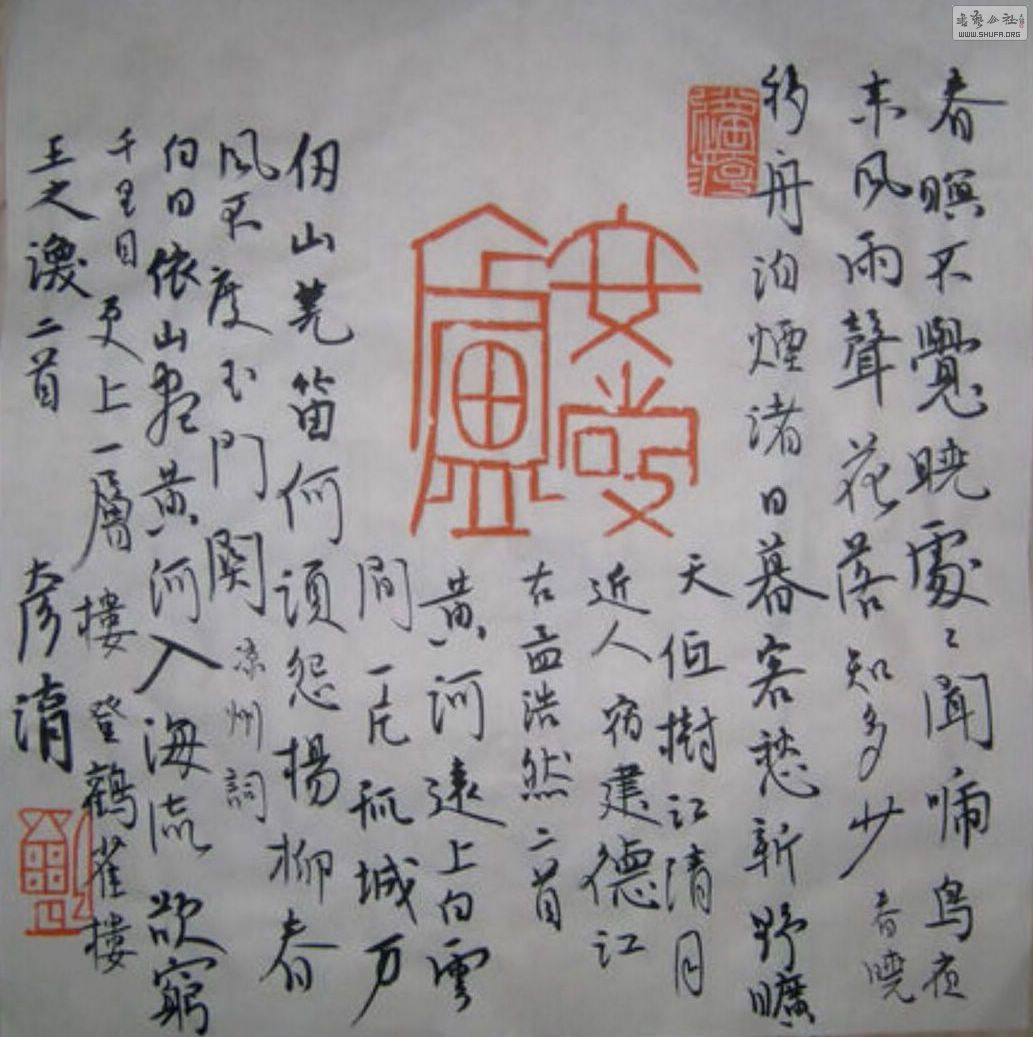 春暝不覺曉處〻聞啼鳥夜
来风雨聲花落知多少 春曉
移舟泊煙渚日暮客愁新野曠
天低樹江清月
近人 宿建德江
右孟浩然二首
黄河遠上白雲
間一片孤城万
仞山羌笛何須怨楊柳春
风不度玉門関 凉州詞
白日依山盡黄河入海流欲窮
千里目更上一層樓 登鶴雀樓
王之渙二首
書藝公社
WWW.SHUFA.ORG